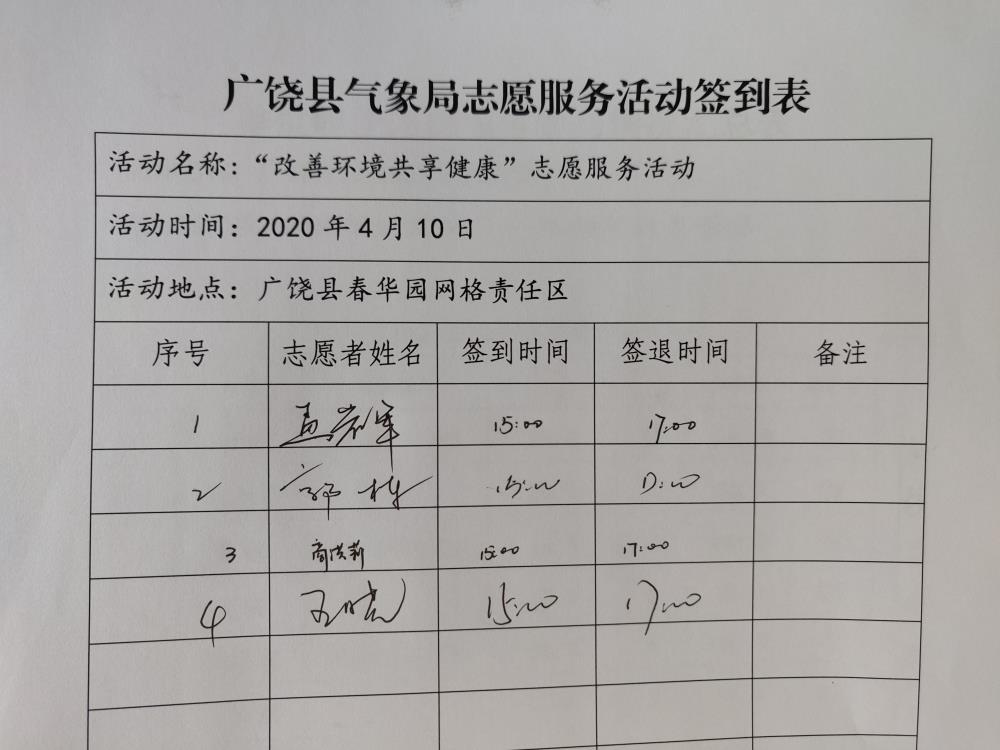 广饶县气象局志愿服务活动签到表
活动名称：“改善环境共享健康”志愿服务活动
活动时间：2020年4月10日
活动地点：广饶县春华园网格责任区
序号 志愿者姓名 签到时间 签退时间 备注
1 孟岩军 15:00 17:00
2 郭栋 15:00 17:00
3 商洪莉 15:00 17:00
4 王晓 15:00 17:00